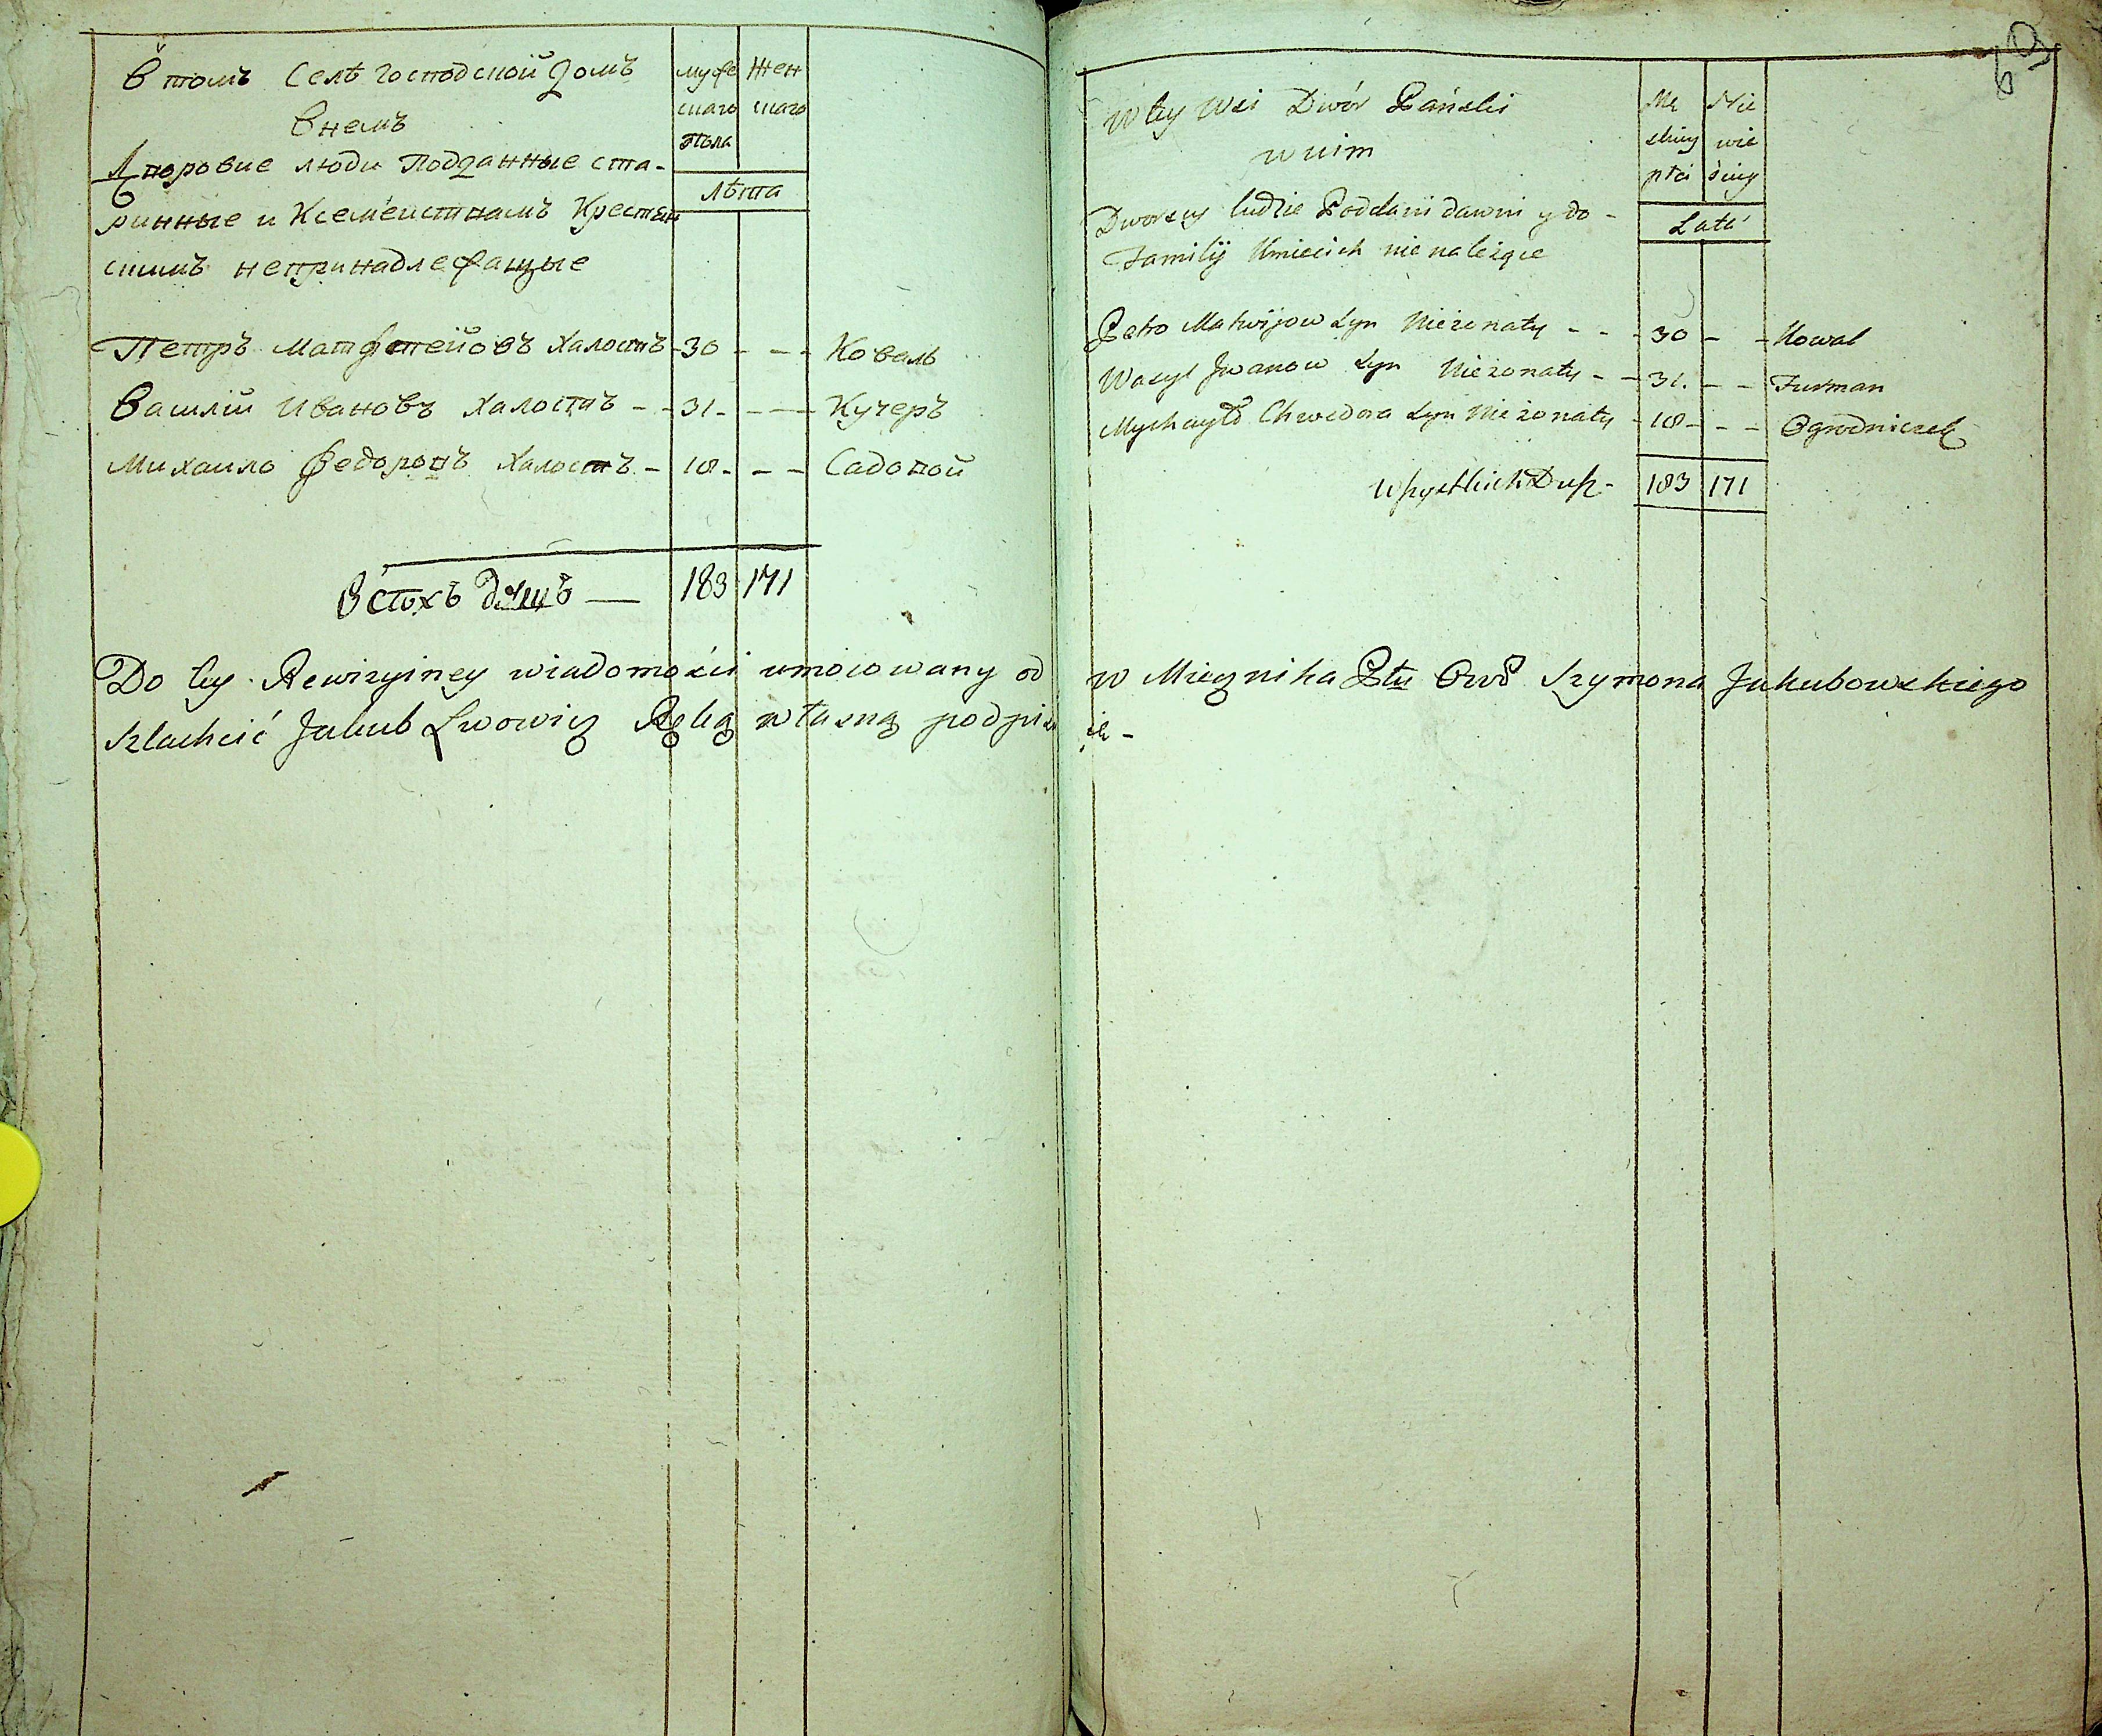 В томъ Селѣ господской домъ
внемъ
Дворовие люди подданные ста-
ринные и Ксемеиствамъ Крестян
скимъ непринадлежащые
муже Жен
скаго скаго
пола
Лѣта
Петръ Матфтейовъ Халостъ - 30 - - - Коваль
Василій Ивановъ Халостъ - - 31 - - - Кучеръ
Михаило Федоровъ Халостъ - 18 - - - Садовой
Всѣхъ душъ — 183 171
W tey Wsi Dwór Pański
w nim
Dworscy ludzie Poddani dawni y do -
Familij Kmiecich nie należące
Mę Nie
skiey wie
płci ściey
Lata
Petro Matwijow Syn Nieżonaty - - - 30 - - Kowal
Wasyl Jwanow Syn Nieżonaty - - 31 - - Furman
Mychayło Chwedora Syn Nieżonaty - 18 - - - Ogrodniczek
Wszystkich Dusz - 183 171
Do tey Rewizyiney wiadomości umocowany od w Miecznika Ptu Owr Szymona Jakubowskiego
Szlachcić Jakub Lwowicz Ręką własną podpisał się -